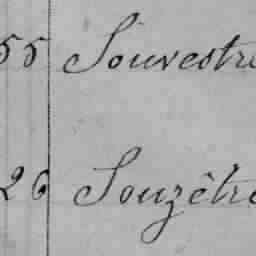 55 Souvestre
26 Souzêtre